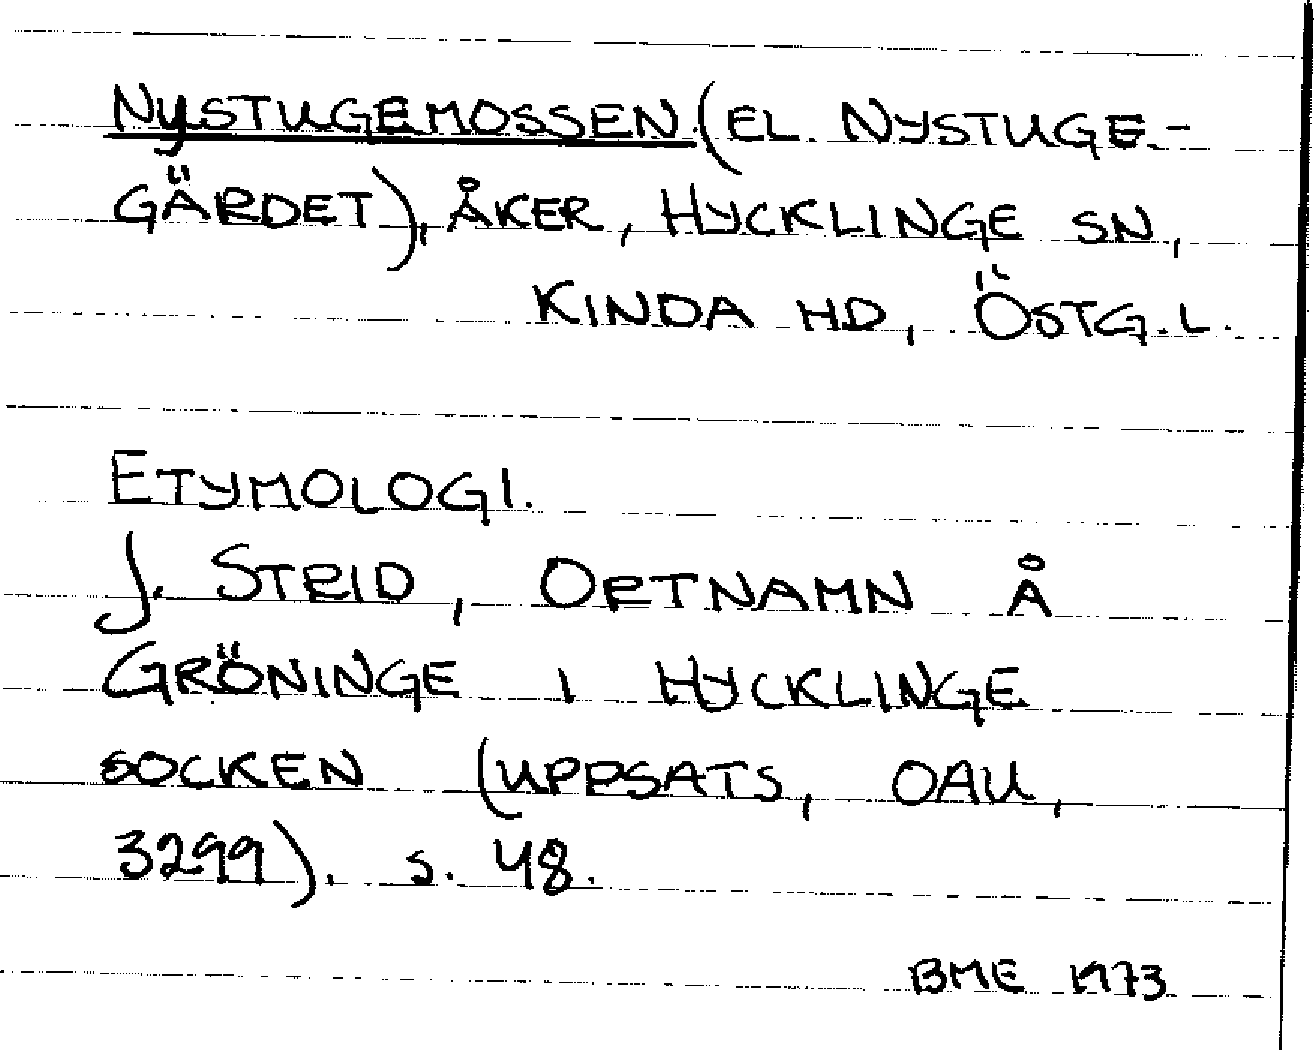 NYSTUGEMOSSEN (EL. NYSTUGE-
GÄRDET), ÅKER, HYCKLINGE SN,
KINDA HD, ÖSTG. L.
ETYMOLOGI.
J. STRID, ORTNAMN Å
GRÖNINGE I HYCKLINGE
SOCKEN (UPPSATS, OAU,
3299). S. 48.
BME 1973